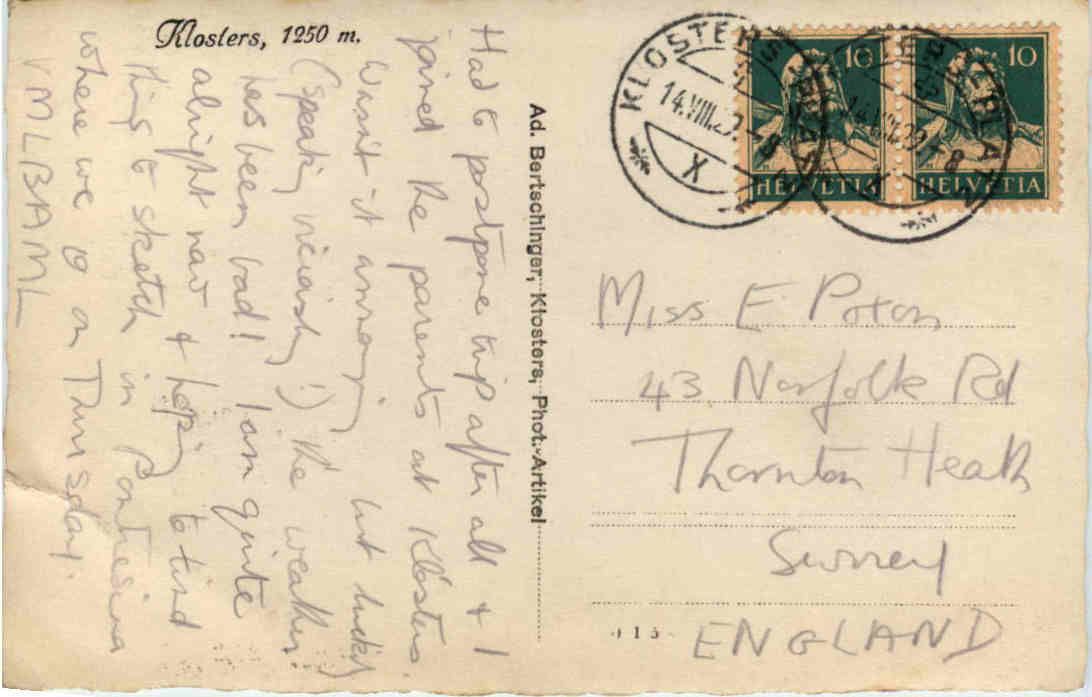 Klosters, 1250 m.
Had to postpone trip after all & I
joined the parents at Klosters.
Wasn't it annoying but lucky
(speaking viciously!) the weather
has been bad! I am quite
alright now & hoping to find
things to sketch in Pontresina
where we go on Thursday.
VMLBAML
Ad. Bertschinger, Klosters, Phot.-Artikel
KLOSTERS
14.VIII.29.-8
X
10
HELVETIA
10
HELVETIA
Miss E Poton
43 Norfolk Rd
Thornton Heath
Surrey
ENGLAND